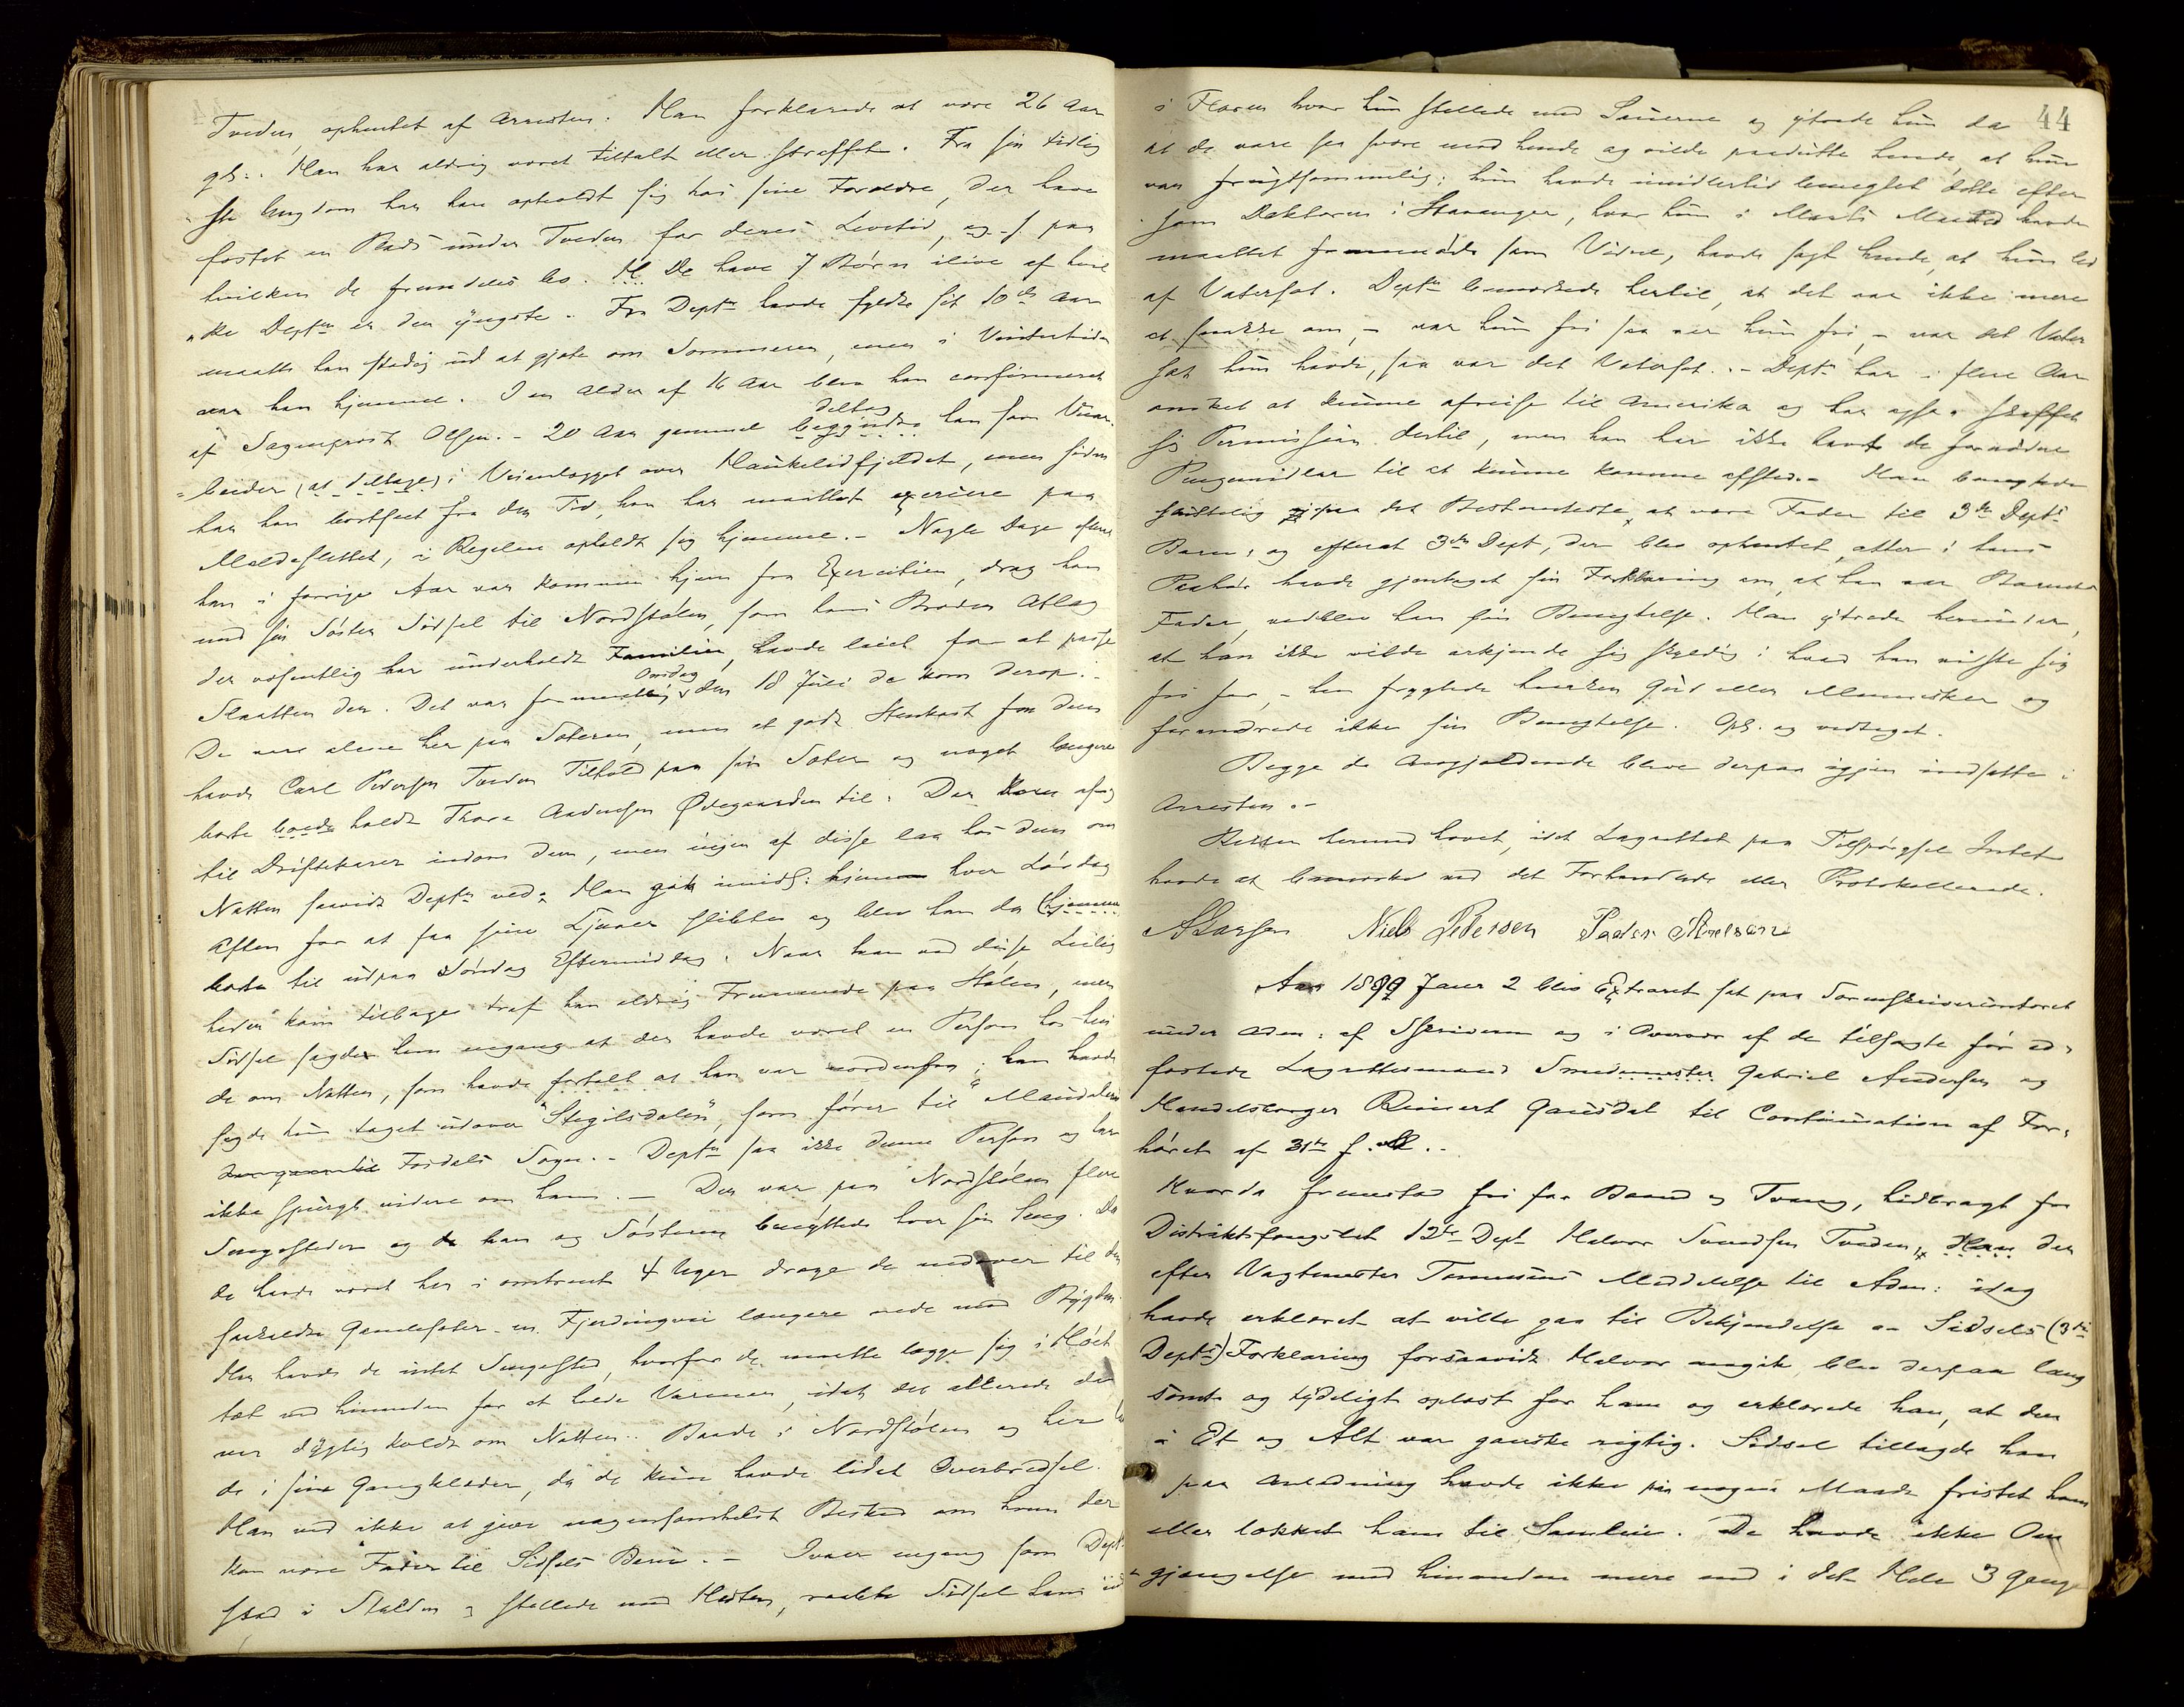 Tveden, ophentet af Arresten. Han forklarede at være 26 Aar
gl.. Han har aldrig været tiltalt eller straffet. Fra sin tidlig
ste Ungdom har han opholdt sig hos sine Forældre, der have
fæstet en Plads under Tveden for deres Levetid, og paa
hvilken de fremdeles bo. De have 7 Børn ilive af hvil
ke Deptn er den yngste. Før Deptn havde fyldt sit 10de Aar
maatte han stadig ud at gjæte om Sommeren, men i Vintertiden
var han hjemme. I en Alder af 16 Aar blev han confirmeret
af Sogneprest Olsen. - 20 Aar gammel begyndte deltog han som Veiar-
beider (at deltage) i Veianlægget over Haukelidfjeldet, men siden
har han bortseet fra den Tid, han har maattet exercere paa
Moldeslettet, i Regelen opholdt sig hjemme. - Nogle Dage efterat
han i forrige Aar var kommen hjem fra Exercitien, drog han
med sin Søster Sidsel til Nordstølen, som hans Broder Atlag
der væsentlig har underholdt Familien, havde leiet for at passe
Slaatten der. Det var formentlig Onsdag den 18 Juli de kom derop. -
De vare alene her paa Sæteren, men et godt Stenkast fra dem
havde Carl Pedersen Tveden Tilhold paa sin Sæter og noget længere
borte holdt Thore Andersen Ødegaarden til. Der kom ofte
til Driftekarer indom dem, men ingen af disse laa hos dem om
Natten saavidt Deptn ved. Han gik imidl: hjem hver Lørdag
Aften for at faa sine Ljaaer slibte og blev han da (hjemme
borte til udpaa Søndag Eftermiddag. Naar han ved disse Leilig
heder kom tilbage traf han aldrig Fremmede paa Stølen, men
Sidsel sagde ham engang at der havde været en Person hos hen
de om Natten, som havde fortalt at han var nordenfra; han havde
sagde hun taget udover "Stegilsdalen", som fører til "Maudalen
Fordals Sogn. - Deptn saa ikke denne Person og har
ikke spurgt videre om ham. - Der var paa Nordstølen flere
Sengesteder og han og Søsteren benyttede hver sin Seng. Da
de havde været her i omtrent 4 Uger drog de nedover til den
saakaldte Gamlesæter - en Fjerdingvei længere nede mod Bygden.
Her havde de intet Sengested, hvorfor de maatte lægge sig i Høet
tæt ved hinanden for at holde Varmen, idet det allerede da
var dygtig koldt om Natten. Baade i Nordstølen og her laa
de i sine Gangklæder, da de kun havde lidet Overbredsel.
Han ved ikke at give nogensomhelst Besked om hvem der
kan være Fader til Sidsels Barn. - Ivaar engang som Deptn
stod i Stalden og stellede med Hesten, raabte Sidsel ham ud
44
i Floren hvor hun stellede med Sauerne og ytrede hun da
at de vare saa svære mod hende og vilde paadutte hende, at hun
var frugtsommelig; hun havde imidlertid benegtet dette efter
som Doktoren i Stavanger, hvor hun i Marts Maaned havde
maattet fremmøde som Vidne, havde sagt hende, at hun led
af Vatersot. Deptn bemærkede hertil, at det var ikke mere
at snakke om, - var hun fri saa var hun fri, - var det Vater
sot hun havde, saa var det Vatersot. - Deptn har i flere Aar
ønsket at kunne afreise til Amerika og har ogsaa skaffet
sig Permission dertil, men han har ikke havt de fornødne
Pengemidler til at kunne komme afsted. - Han benegtede
paa det Bestemteste at være Fader til 3die Depts
Barn; og efterat 3die Dept, der blev ophentet, atter i hans
Paahør havde gjentaget sin Forklaring om, at han var Barnets
Fader, vedblev han sin Benegtelse. Han ytrede herunder,
at han ikke vilde erkjende sig skyldig i hvad han vidste sig
fri for, - han frygtede hverken Gud eller Mennesker og
forandrede ikke sin Benegtelse. Opl. og vedtaget.
Begge de Angjældende bleve derpaa igjen indsatte i
Arresten. -
Retten hermed hævet, idet Lagrettet paa Tilspørgsel Intet
havde at bemærke ved det Forhandlede eller Protokollerede.
ALarsen Niels Pedersen Peder
Aar 1889 Januar 2 blev Extraret sat paa Sorenskriverkontoret
under Adm: af Skriveren og i Overvær af de tilsagte før ed-
fæstede Lagrettesmænd Smedemester Gabriel Andersen og
Handelsborger Reinert Gausdal til Continuation af For-
høret af 31te f. M. -
Hvorda fremstod fri for Baand og Tvang, hidbragt fra
Distriktsfængslet 12te Dept Halvor Svendsen Tveden, Han der
efter Vagtmester Tønnesens Meddelelse til Adm: idag
havde erklæret at ville gaa til Bekjendelse. - Sidsels (3die
Depts) Forklaring forsaavidt Halvor angik, blev derpaa lang
somt og tydeligt oplæst for ham og erklærede han, at den
i Et og Alt var ganske rigtig. Sidsel tillagde han
paa Anledning havde ikke paa nogen Maade fristet ham
eller lokket ham til Samleie. De havde ikke Om
gjængelse med hinanden mere end i det Hele 3 Gange